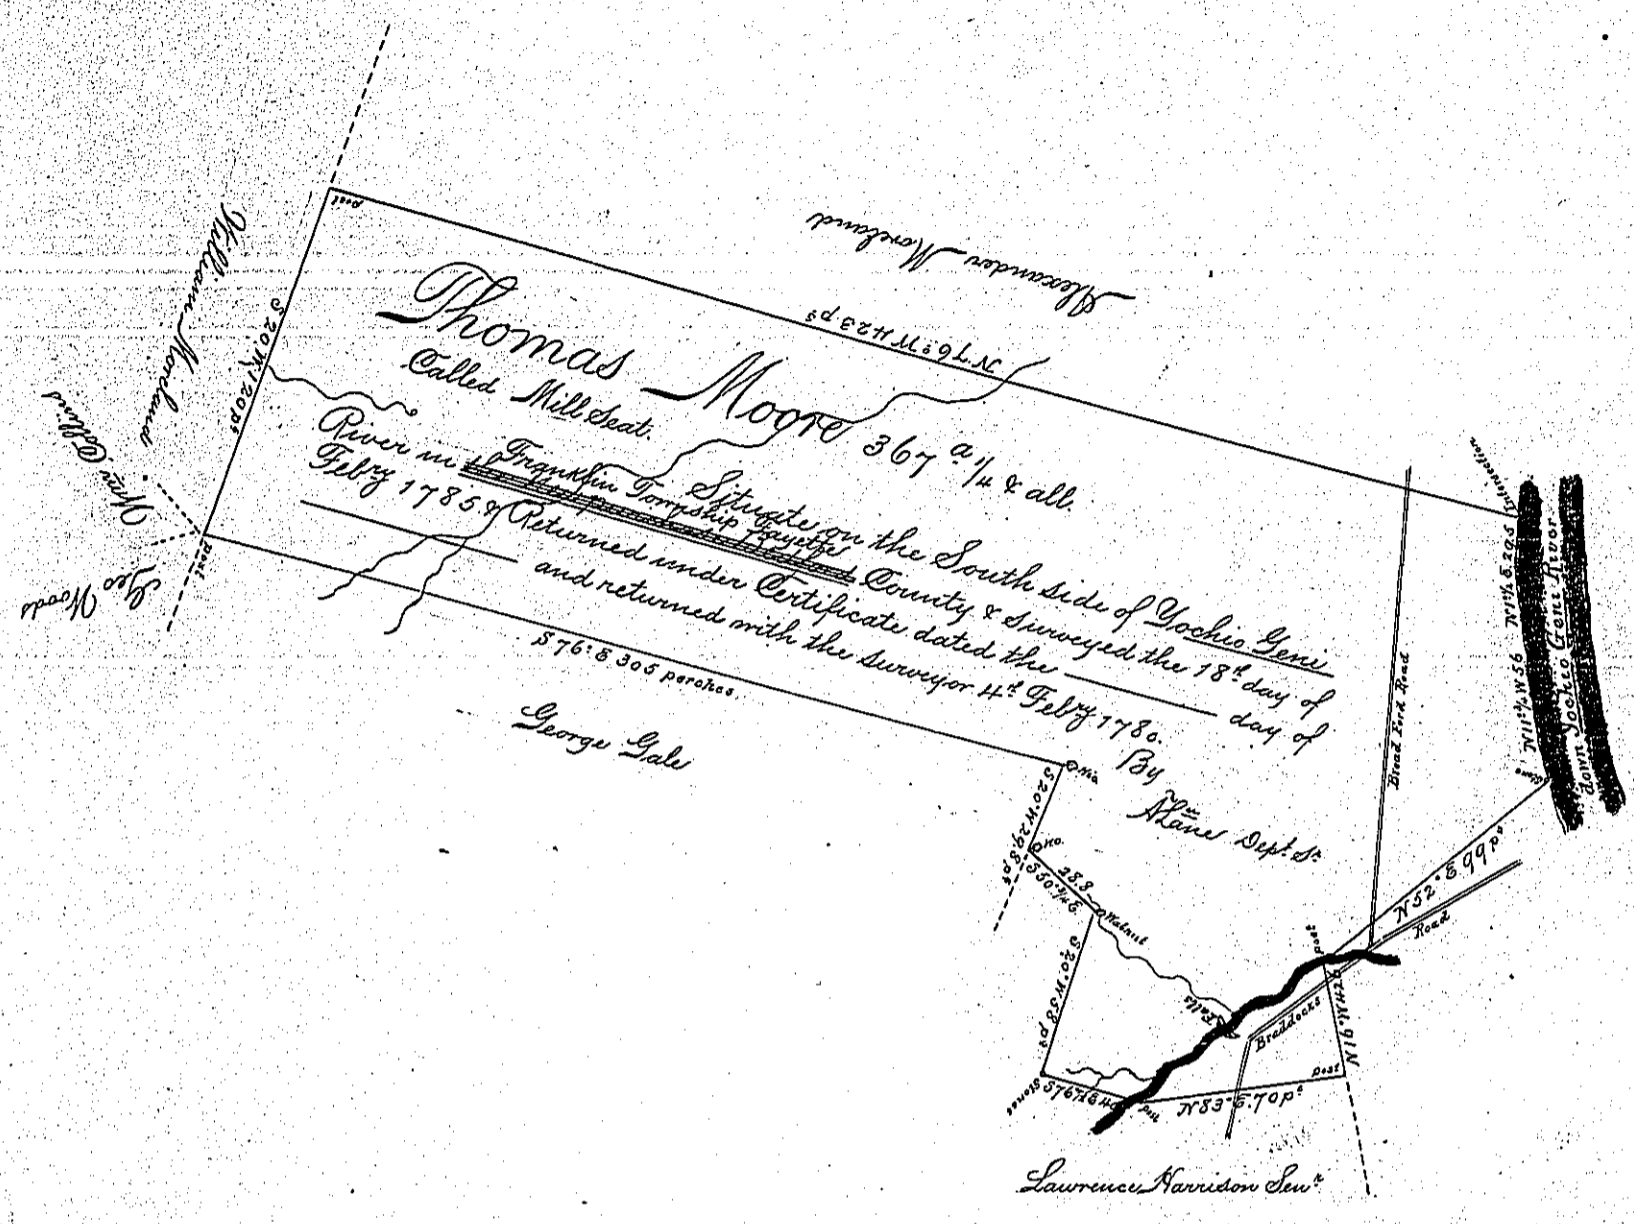 Alexander Moreland
N 76° W 423 ps
post
William Moreland
S 20 W 120 ps
Wm Collins
Geo Woods
post
Thomas Moore 367 a 1/4 & all.
Called Mill Seat.
Situate on the South side of Yochio Geni
River in Franklin Township Fayette County & Surveyed the 18th day of
Febry 1785 & Returned under Certificate dated the ____ day of
____ and returned with the surveyor 4th Febry 1780.
By
ALane Dept. Sr
S 76° E 305 perches.
George Gale
S 20° W 29.8 ps
S 50° 3/4 E.
28.8
Walnut
S 20° W 58 ps
Stones
S 76 1/2 E 40
post
N 83° E. 70 ps
post
N 16° W 42
post
N 52° E 99 ps
Falls
Braddocks
Road
Broad Ford Road
Stone
N 11° 3/4 W 56
N 1° 1/2 E 20.5
Intersection
down Yocheo Geni River
Lawrence Harrison Senr